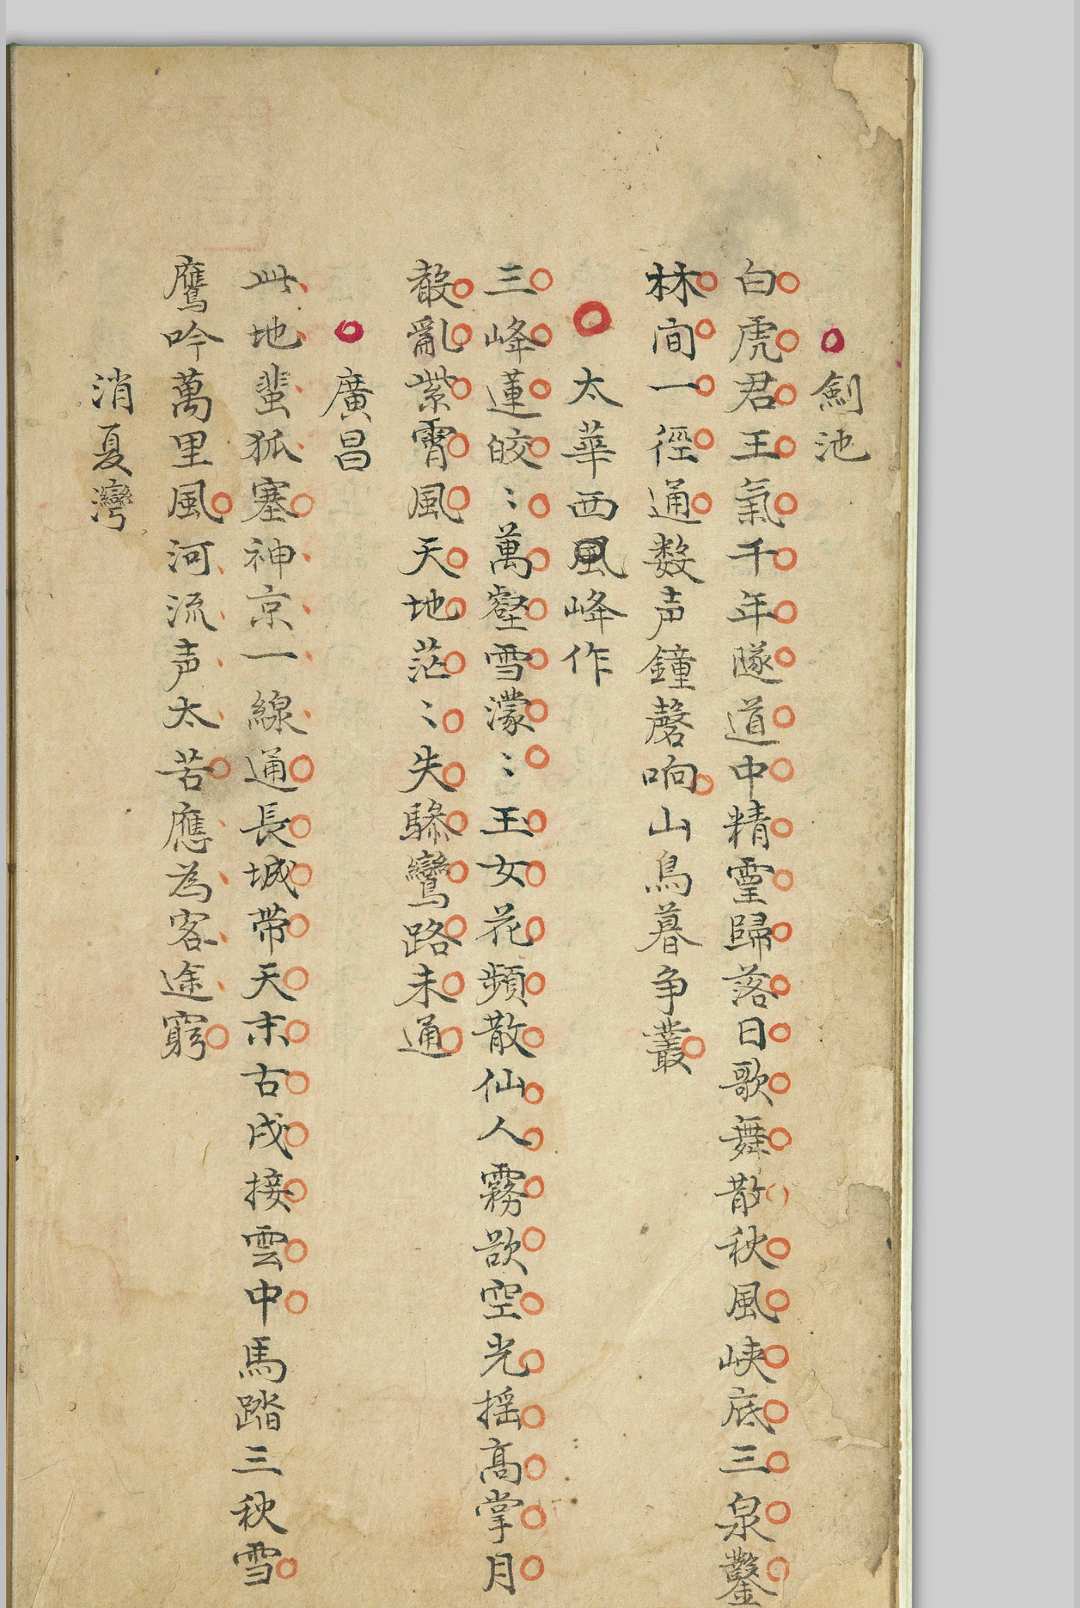 劍池
白虎君王氣千年隧道中精靈歸落日歌舞散秋風峽底三泉鑿
林间一徑通数声鐘磬响山鳥暮争叢
太華西風峰作
三峰蓮皎〻萬壑雪濛〻玉女花頻散仙人霧欲空光摇高掌月
散亂紫霄風天地茫〻失驂鸞路未通
廣昌
此地蜚狐塞神京一線通長城帯天末古戍接雲中馬踏三秋雪
鷹吟萬里風河流声太苦應為客途窮
消夏灣